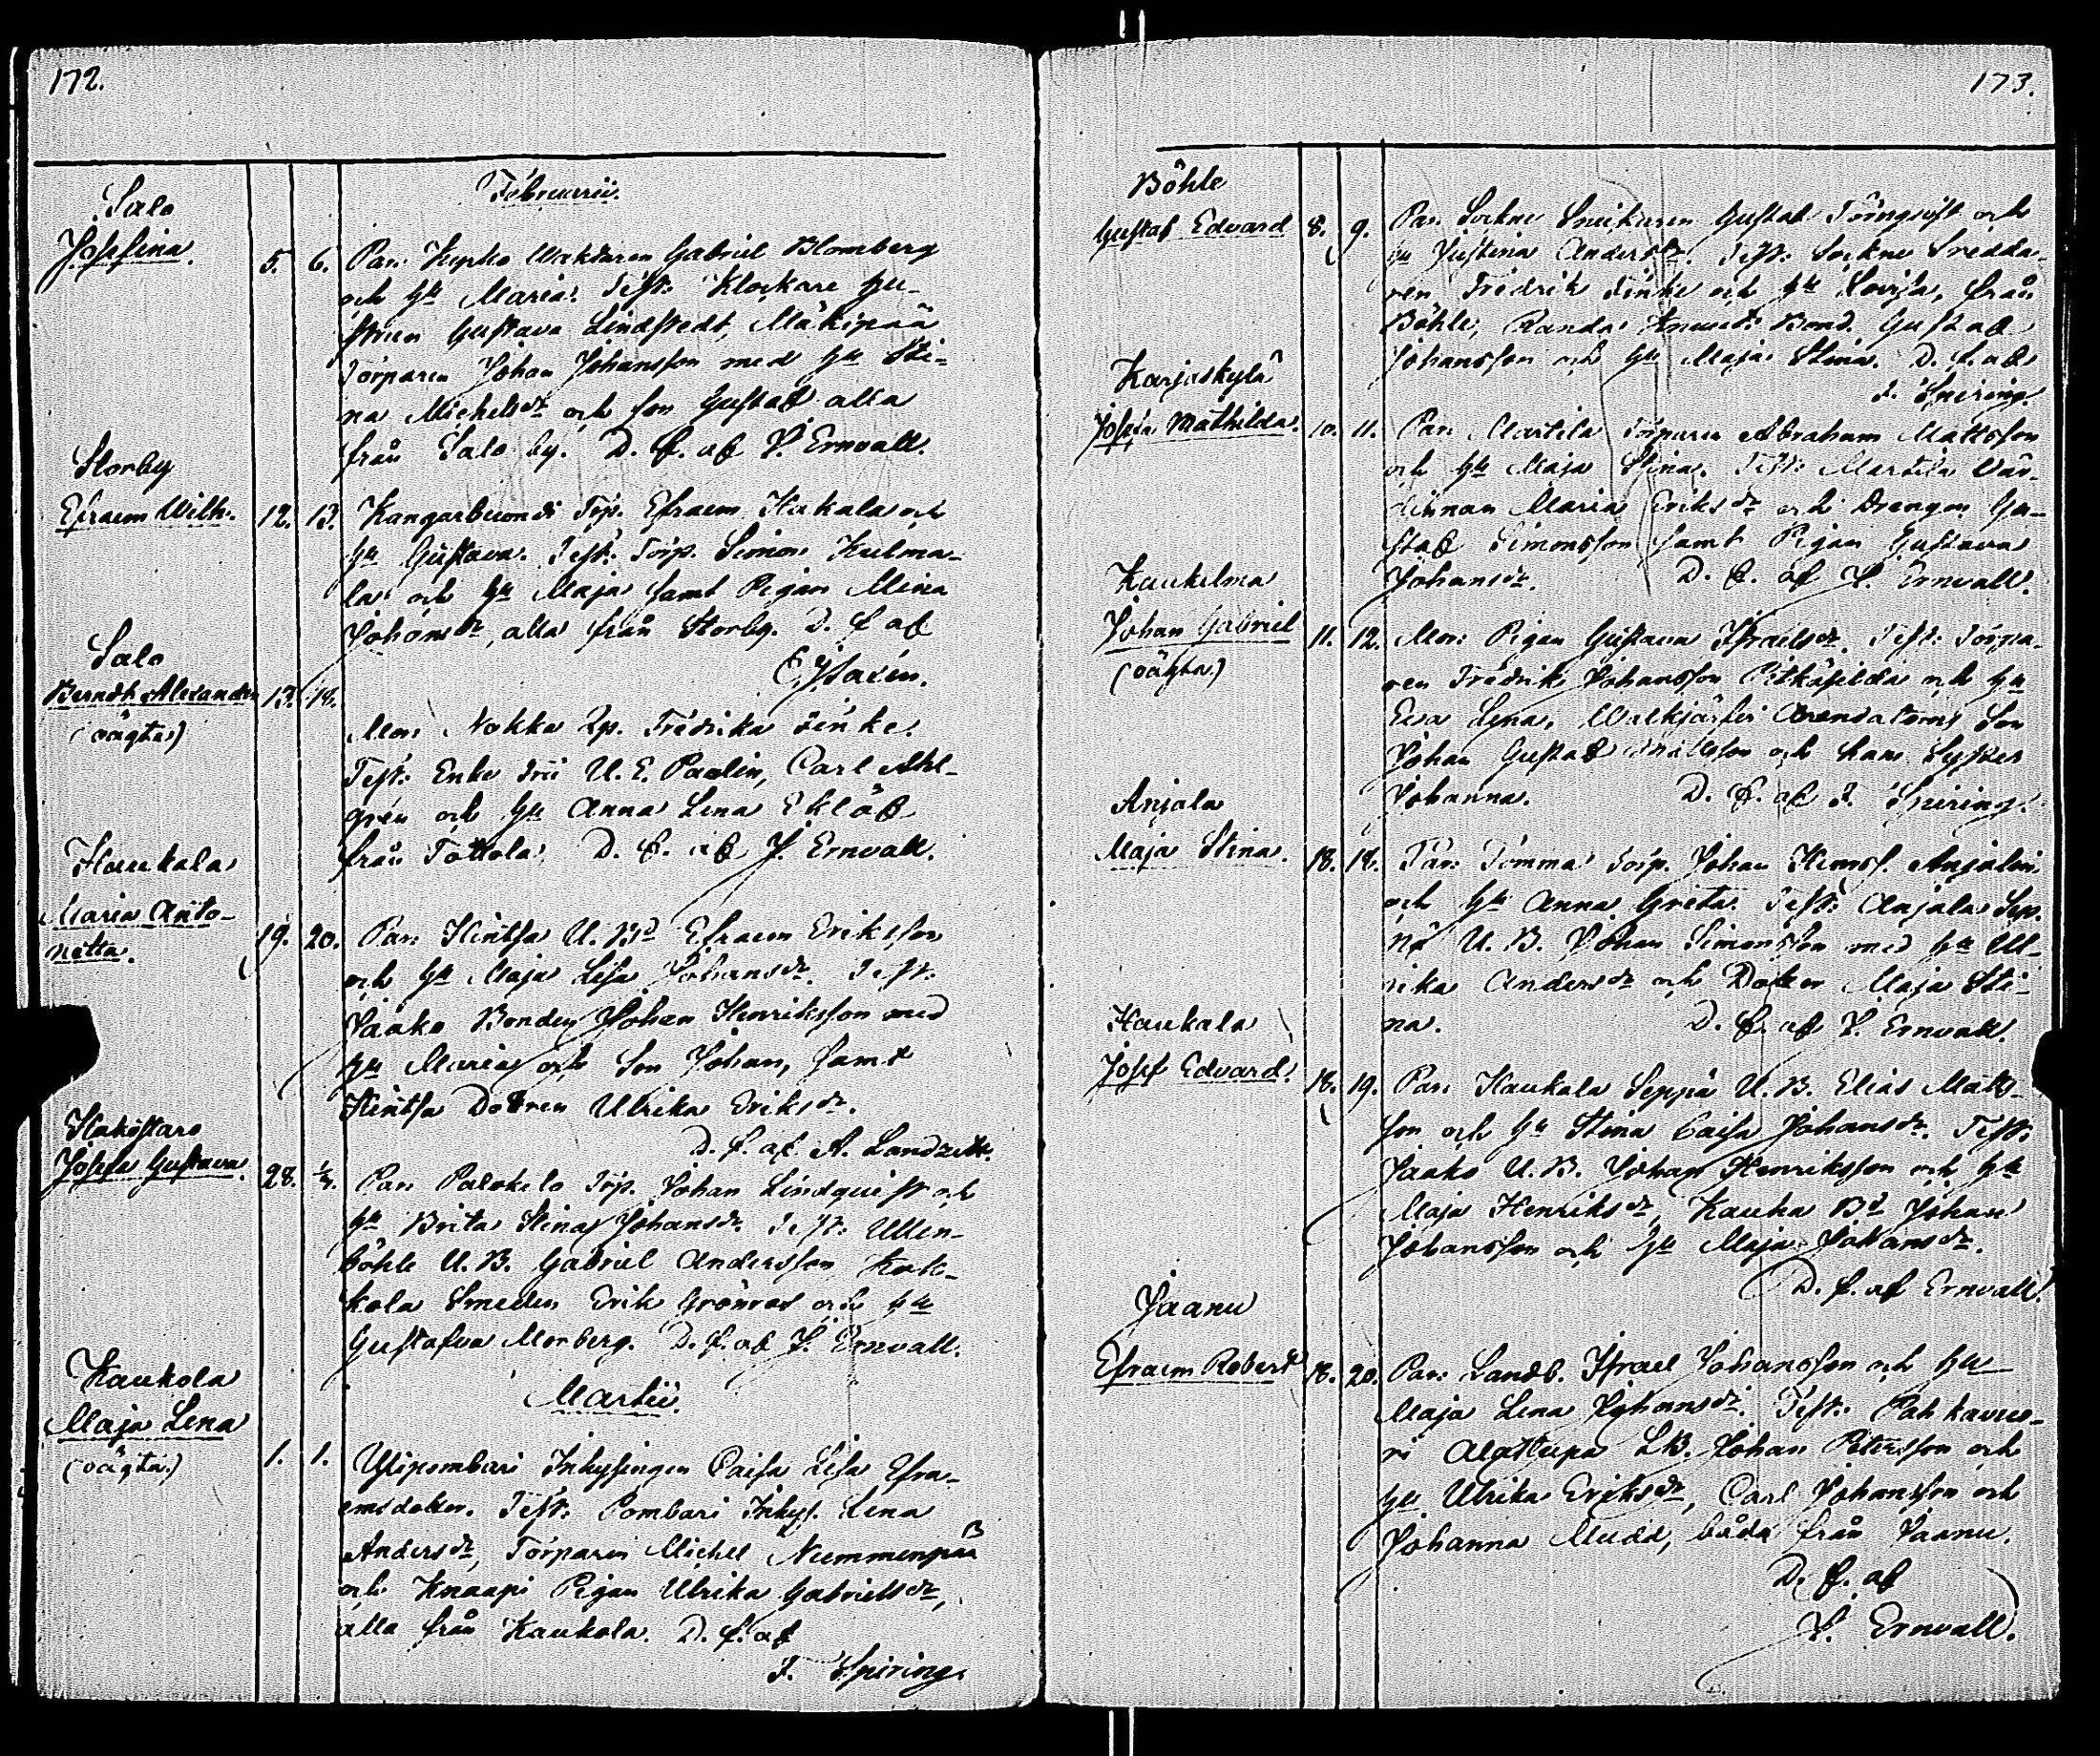 172.
Februarii.
Salo
Josefina. 5. 6. Par: Kyrko Waktaren Gabriel Blomberg
och hu Maria. Test: Klockare hu-
strun Gustava Lindstedt, Mäkipää
Torparen Johan Johansson med hu Sti-
na Michelsdr och son Gustaf alla
från Salo by. D. f. af J. Ernvall.
Storby
Efraim Wilh. 12. 13. Kangarbonds Torp. Efraim Hakala och
hu Gustava. Test: Torp. Simon Kulma-
la och hu Maja samt Pigan Mina
Johansdr, alla från Storby. D. f. af
Salo
Berndt Alexander 13. 18.
(oägta) Mor: Nokka Qp. Fredrika Linke.
Test: Enke Fru U. E. Paolin, Carl Ahl-
gren och hu Anna Lena Eklöf
från Tottola. D. f. af J. Ernvall.
Haukala
Maria Anto-
netta. 19. 20. Par: Hintsa U. Bd Efraim Eriksson
och hu Maja Lisa Johansdr. Test:
Jaako Bonden Johan Henriksson med
hu Maria och Son Johan, samt
Hintsa Dottren Ulrika Eriksdr.
D. f. af A. Landzett.
Josefa Gustava. 28. 1/3. Par: Palokelo Torp. Johan Lindquist och
hu Brita Stina Johansdr. Test: Ullen-
böhle U. B. Gabriel Andersson Kok-
kola Smeden Erik Grönroos och hu
Gustafva Morberg. D. f. af J. Ernvall.
Martii.
Kaukola
Maja Lena
(oägta) 1. 1. Ylipombari Inhysingen Caisa Lisa Efra-
emsdotter. Test: Pombari Inhys. Lena
Andersdr, Torparen Michel Nummenpää
och Knaapi Pigan Ulrika Gabrielsdr,
alla från Kaukola. D. f. af
F. Spiring.
173.
Böhle
Gustaf Edvard 8. 9. Par: Sockne Snickaren Gustaf Törnqvist och
hu Justina Andersdr. Test: Sockne Skredda-
ren Fredrik Linke och hu Lovisa, från
Böhle, Randa Bond. Gustaf
Johansson och hu Maja Stina. D. f. af
F. Spiring.
Karjaskylä
Josefa Mathilda. 10. 11. Par: Martila Torparen Abraham Mattsson
och hu Maja Stina. Test: Martila Vär-
dinnan Maria Eriksdr och Drengen Gu-
staf Simonsson samt Pigan Gustava
Johansdr. D. f. af J. Ernvall.
Kaukelma
Johan Gabriel 11. 12. Mor: Pigan Gustava Israelsdr. Test: Torpa-
(oägta.) ren Fredrik Johansson Pitkäsilda och hu
Eva Lena, Walkjärfvi Arendatorns Son
Johan Gustaf Mattsson och hans Syster
Johanna. D. f. af F. Spiring.
Anjala
Maja Stina. 18. 18. Par: Tomma Torp. Johan Hinrss. Anjalin
och hu Anna Greta. Test: Anjala Sep-
pä U. B. Johan Simonsson med hu Ul-
rika Andersdr och Dotter Maja Sti-
na. D. f. af J. Ernvall.
Haukala
Josef Edvard. 18. 19. Par: Haukala Seppä U. B. Elias Matts-
son och hu Stina Caisa Johansdr. Test:
Jaako U. B. Johan Henriksson och hu
Maja Henriksdr, Kauka Bd Johan
Johansson och hu Maja Johansdr.
D. f. af Ernvall.
Jaanu
Efraim Robert 18. 20. Par: Landb. Israel Johansson och hu
Maja Lena Johansdr. Test: Pahkavuo-
ri Alattupa LB. Johan Petersson och
hu Ulrika Eriksdr, Carl Johansson och
Johanna Mudd, båda från Jaanu.
D. f. af
J. Ernvall.